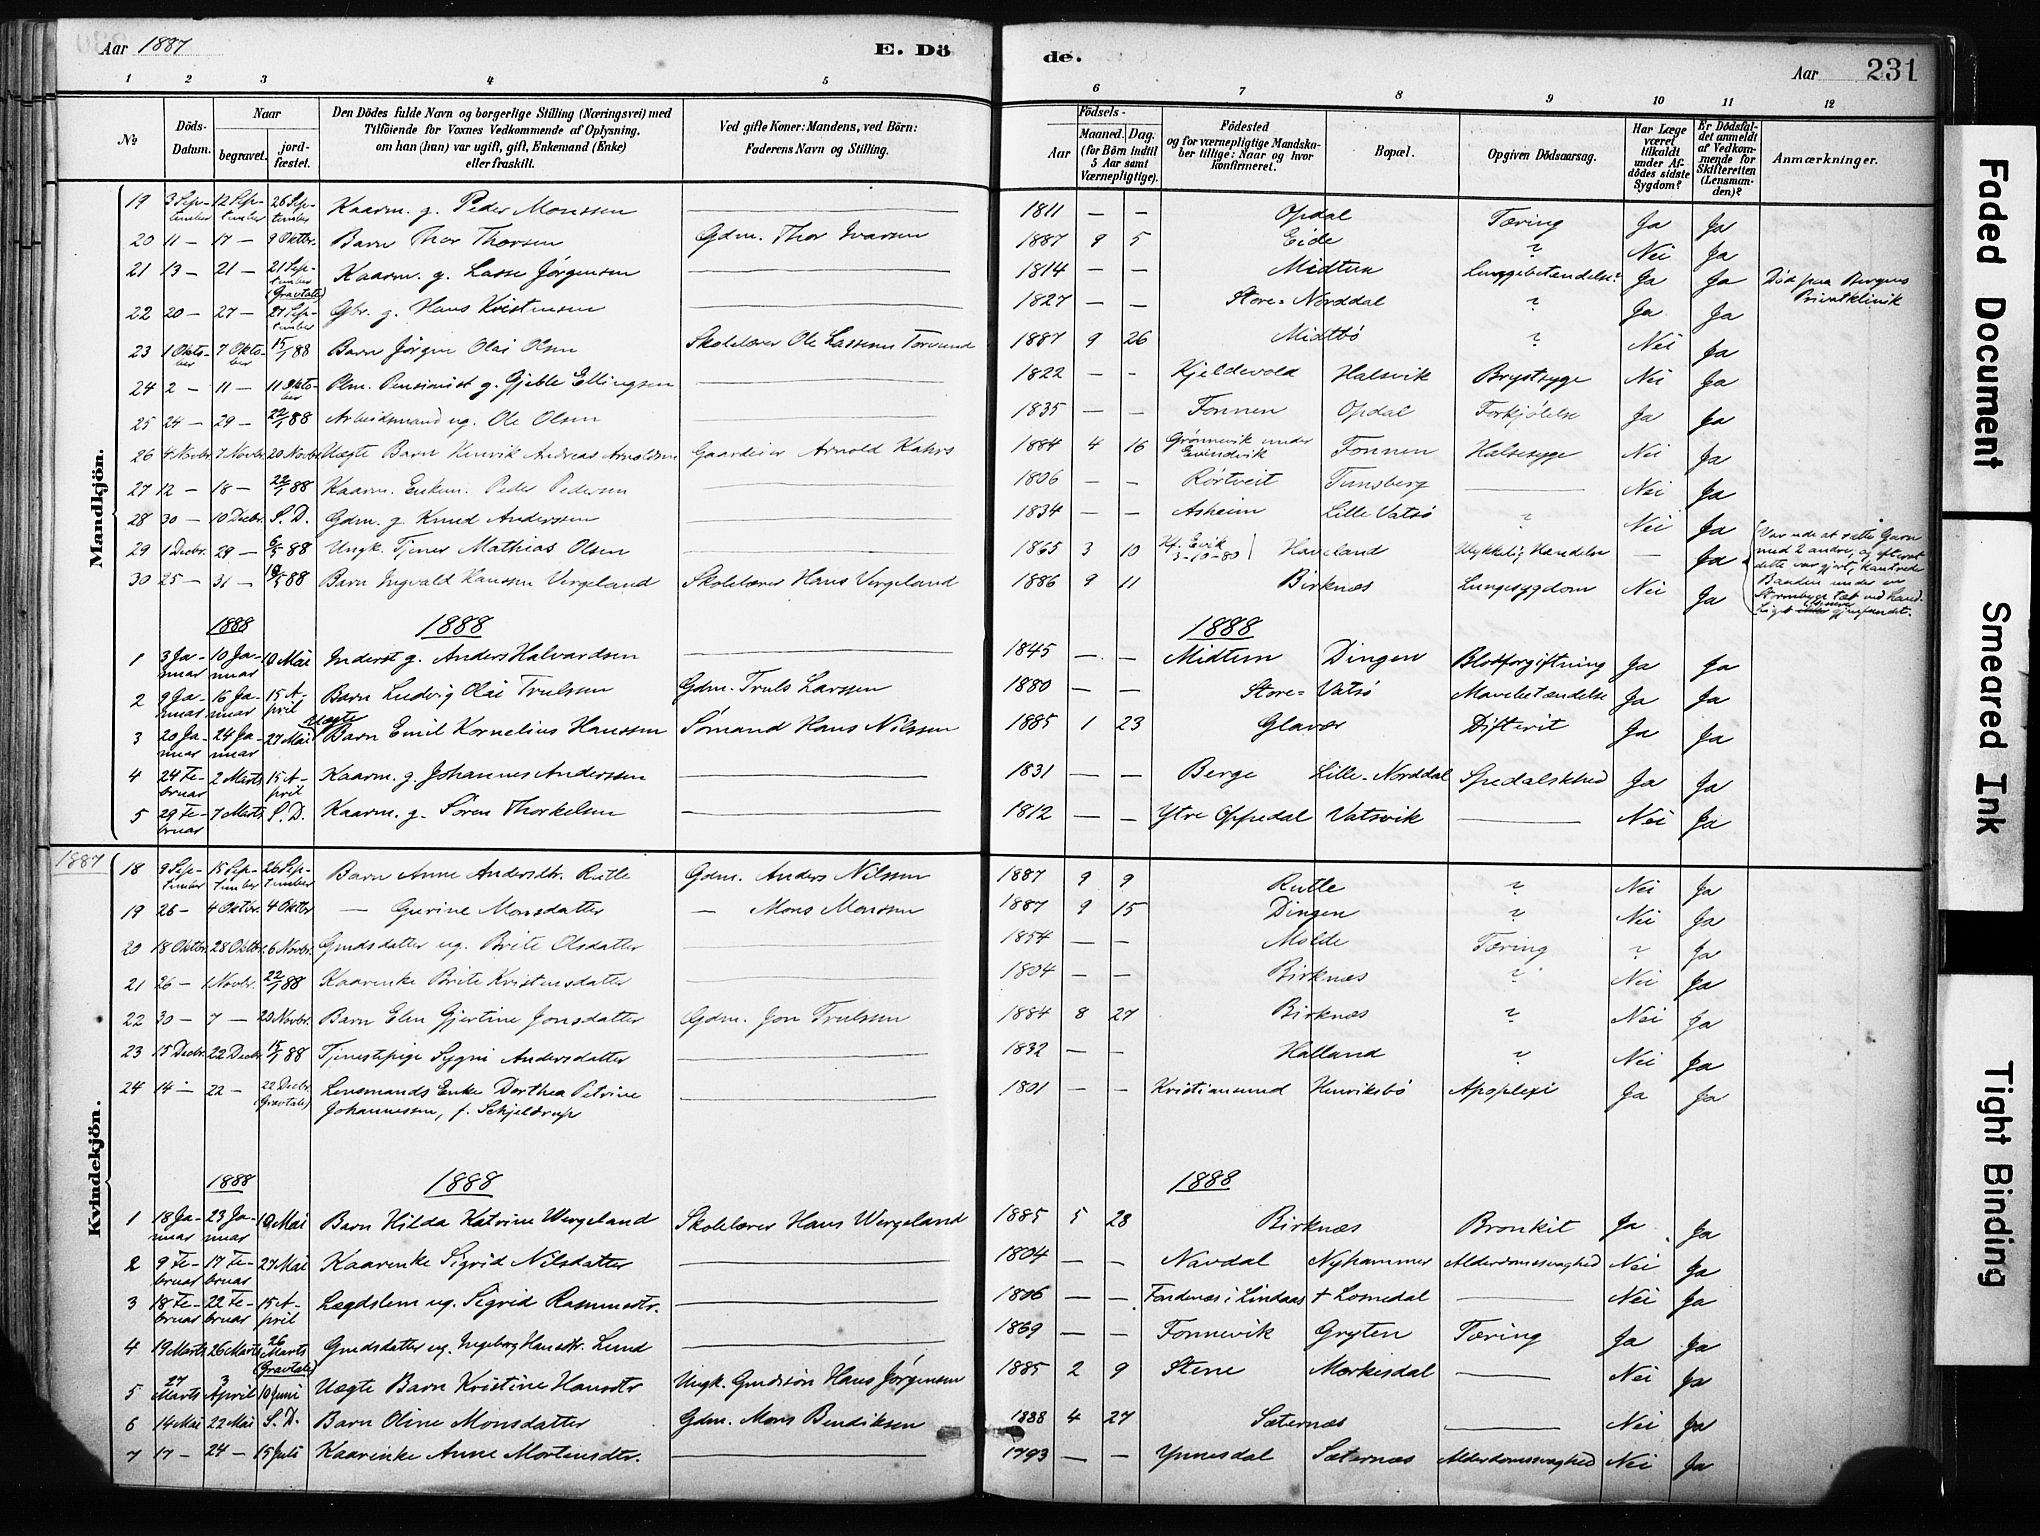 Aar 1887 E. Dö de. Aar 231
1 2 3 4 5 6 7 8 9 10 11 12
№ Döds-Datum. Naar begravet. jord-fæstet. Den Dödes fulde Navn og borgerlige Stilling (Næringsvei) med Tilföiende for Voxnes Vedkommende af Oplysning. om han (hun) var ugift, gift, Enkemand (Enke) eller fraskilt. Ved gifte Koner: Mandens, ved Börn: Faderens Navn og Stilling. Aar Födsels- Maaned. Dag. (for Börn indtil 5 Aar samt Værnepligtige). Födested og for værnepligtige Mandska-ber tillige: Naar og hvor konfirmeret. Bopæl. Opgiven Dödsaarsag. Har Læge været tilkaldt under Af-dödes sidste Sygdom? Er Dödsfal-det anmeldt af Vedkom-mende for Skifteretten (Lensman-den)? Anmærkninger.
Mandkjön.
19 3 Sep-tember 12 Sep-tember 26 Sep-tember Kaarm. g. Peder Monssen 1811 — — Opdal Tæring Ja Ja
20 11 — 17 — 9 Oktbr. Barn Thor Thorsen Gdm. Thor Ivarsen 1887 9 5 Eide ? Nei Ja
21 13 — 21 — 21 Sep-tember (Gravtale) Kaarm. g. Lasse Jörgensen 1814 — — Midtun Lunggebetændelse? Ja Ja Död paa Bergens Privatklinik
22 20 — 27 — 27 Sep-tember Gbr. g. Hans Kristensen 1827 — — Store-Norddal ? Ja Ja
23 1 Okto-ber 7 Okto-ber 15/1 88 Barn Jörgen Olai Olsen Skolelærer Ole Lassesen Torsund 1887 9 26 Midtbö ? Nei Ja
24 2 — 11 — 11 Okto-ber Plm. Pensionist g. Gjeble Ellingsen 1822 — — Kjeldevold Halsvik Brystsyge Nei Ja
25 24 — 29 — 22/1 88 Arbeidsmand ug. Ole Olsen 1835 — — Fonnen Opdal Forkjölelse Ja Ja
26 4 Novbr. 7 Novbr. 20 Novbr. Uægte Barn Henrik Andreas Arnoldsen Gaardeier Arnold Kahrs 1884 4 16 Grönnevik under Evindvik Fonnen Halsesyge Nei Ja
27 12 — 18 — 22/1 88 Kaarm. Enkem. Peder Pedersen 1806 — — Rörtveit Tunsberg — Nei Ja
28 30 — 10 Decbr. S. D. Gdm. g. Knud Anderssen 1834 — — Asheim Lille Vatsö ? Nei Ja
29 1 Decbr. 29 — 6/5 88 Ungk. Tjener Mathias Olsen 1865 3 10 Kf. Eivik 3-10-80 Haveland Ulykkelig Hændelse — Ja Var ude at sætte Garn med 2 andre, og efterat dette var gjort, kantrede Baaden under en Stormbyge tæt ved Land. Liget gjenfandtes.
30 25 — 31 — 10/5 88 Barn Ingvald Hanssen Vergeland Skolelærer Hans Vergeland 1886 9 11 Birknæs Lungesygdom Nei Ja
1888 1888 1888
1 3 Ja-nuar 10 Ja-nuar 10 Mai Inderst g. Anders Halvardsen 1845 — — Midtun Dingen Blodforgiftning Ja Ja
2 9 Ja-nuar 16 Ja-nuar 15 A-pril Barn Ludvig Olai Trulssen Gdm. Truls Larssen 1880 — — Store-Vatsö Mavebetændelse Ja Ja
3 20 Ja-nuar 24 Ja-nuar 27 Mai Uægte Barn Emil Kornelius Hanssen Sömand Hans Nilssen 1885 1 23 Glavær Difterit Ja Ja
4 24 Fe-bruar 2 Marts 15 A-pril Kaarm. g. Johannes Anderssen 1831 — — Berge Lille-Norddal Spedalskhed Ja Ja
5 29 Fe-bruar 7 Marts S. D. Kaarm. g. Sören Thorkelsen 1812 — — Ytre Oppedal Vatsvik — Nei Ja
1887
Kvindekjön.
18 9 Sep-tember 15 Sep-tember 26 Sep-tember Barn Anne Andersdtr. Rutle Gdm. Anders Nilssen 1887 9 9 Rutle ? Nei Ja
19 26 — 4 Oktbr. 4 Oktbr — Gurine Monsdatter — Mons Monssen 1887 9 15 Dingen ? Nei Ja
20 18 Oktbr. 28 Oktbr. 6 Novbr. Gmdsdatter ug. Brite Olsdatter 1854 — — Molde Tæring ? Ja
21 26 — 1 Novbr. 22/1 88 Kaarenke Brite Kristensdatter 1804 — — Birknæs ? Nei Ja
22 30 — 7 — 20 Novbr. Barn Elen Gjertine Jonsdatter Gdm. Jon Trulssen 1884 8 27 Birknæs ? Nei Ja
23 15 Decbr. 22 Decbr. 15/1 88 Tjenestepige Sygni Andersdatter 1832 — — Halland ? Nei Ja
24 14 — 22 — 22 Decbr. (Gravtale) Lensmands Enke Dorthea Petrine Johannessen, f. Schjelderup 1801 — — Kristiansund Henriksbö Apoplexi Ja Ja
1888 1888 1888
1 18 Ja-nuar 23 Ja-nuar 10 Mai Barn Hilda Katrine Wergeland Skolelærer Hans Wergeland 1885 5 28 Birknæs Bronkit Ja Ja
2 9 Fe-bruar 17 Fe-bruar 27 Mai Kaarenke Sigrid Nilsdatter 1804 — — Navdal Nyhammer Alderdomssvaghed Nei Ja
3 18 Fe-bruar 22 Fe-bruar 15 A-pril Lægdslem ug. Sigrid Rasmusdtr. 1806 — — Fondenæs i Lindaas + Losnedal — Nei Ja
4 19 Marts 26 Marts 26 Marts (Gravtale) Gmdsdatter ug. Ingeborg Hansdtr. Lund 1869 — — Fonnevik Gryten Tæring Ja Ja
5 27 Marts 3 April 10 Juni Uægte Barn Kristine Hansdtr Ungk. Gmdssön Hans Jörgensen 1885 2 9 Stene Mørkesdal — Nei Ja
6 14 Mai 22 Mai S. D. Barn Oline Monsdatter Gdm. Mons Bendiksen 1888 4 27 Sæternæs — Nei Ja
7 17 — 24 — 15 Juli Kaarenke Anne Mortensdtr. 1793 — — Ynnesdal Sæternæs Alderdomssvaghed Nei Ja
Faded Document
Smeared Ink
Tight Binding